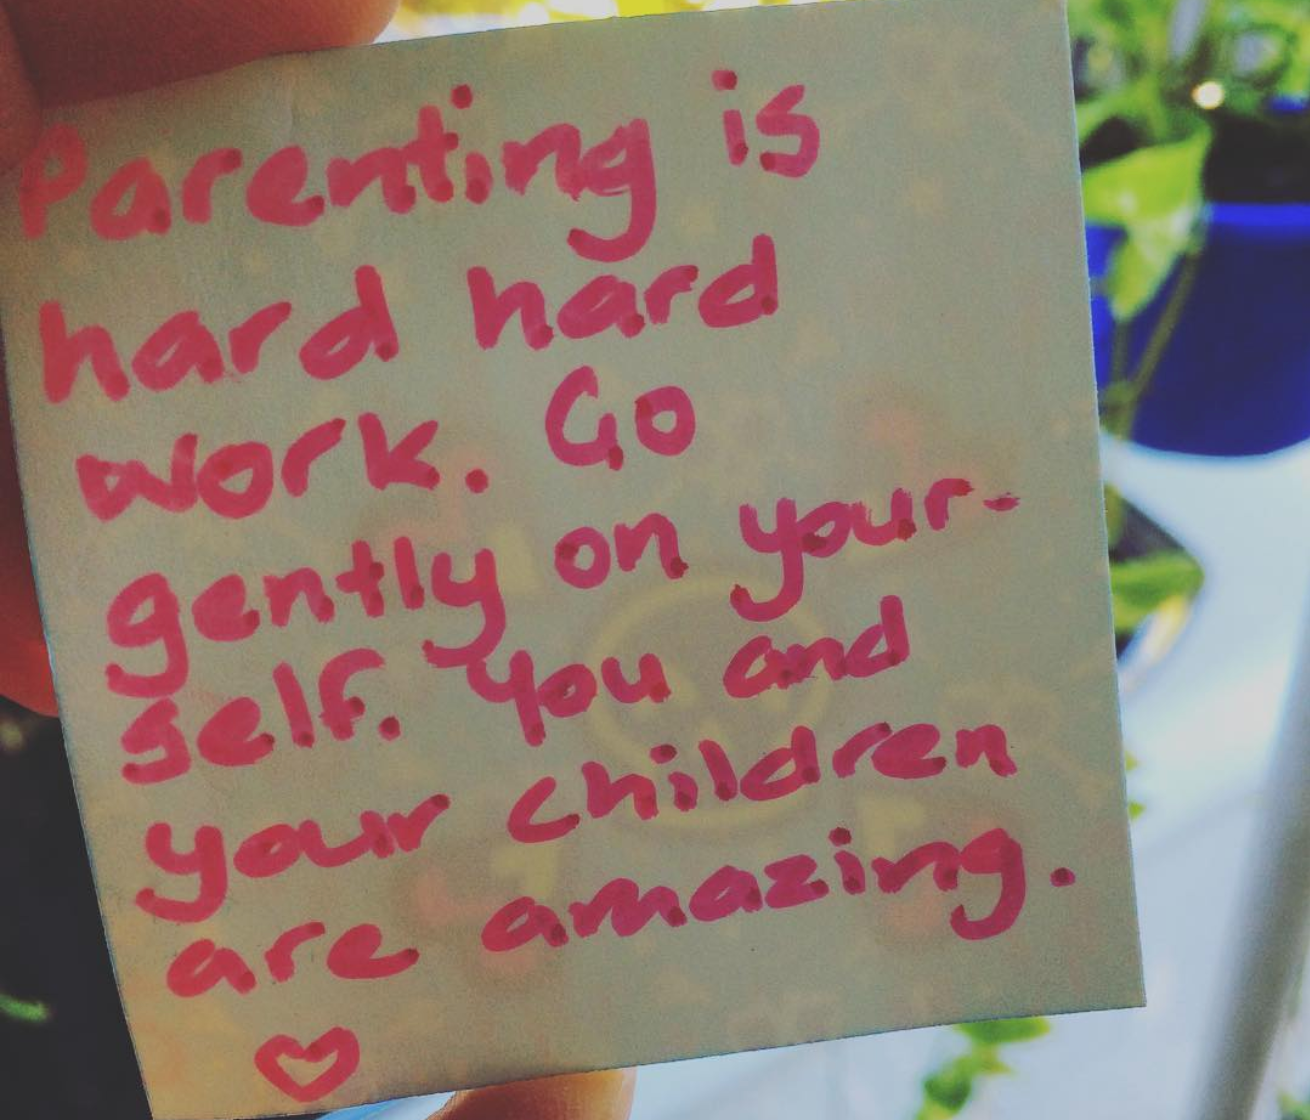 Parenting is
hard hard
work. Go
gently on your-
self. You and
your children
are amazing.